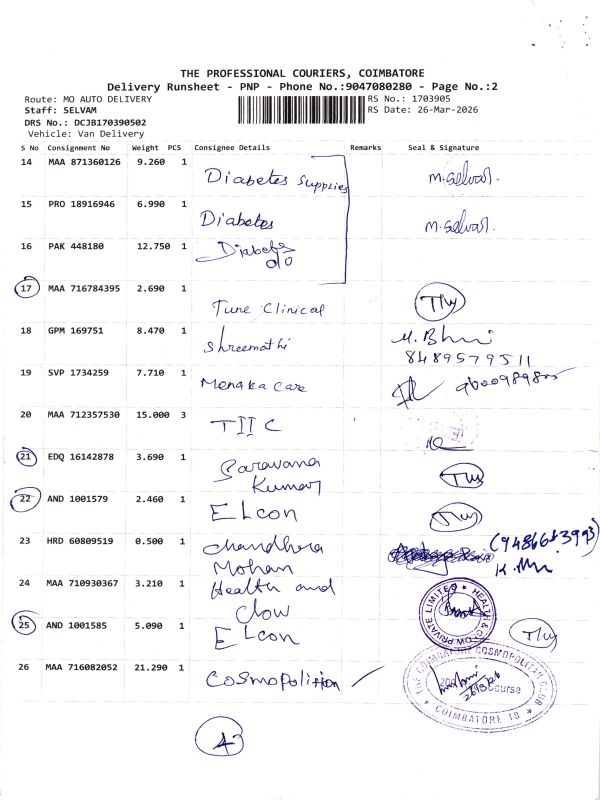 THE PROFESSIONAL COURIERS, COIMBATORE
Delivery Runsheet - PNP - Phone No.:9047080280 - Page No.:2
Route: MO AUTO DELIVERY RS No.: 1703905
Staff: SELVAM RS Date: 26-Mar-2026
DRS No.: DCJB170390502
Vehicle: Van Delivery
S No Consignment No Weight PCS Consignee Details Remarks Seal & Signature
14 MAA 871360126 9.260 1 Diabetes Supplies M. Selvar.
15 PRO 18916946 6.990 1 Diabetes M. Selvar.
16 PAK 448180 12.750 1 Diabetes
17 MAA 716784395 2.690 1 Tune Clinical
18 GPM 169751 8.470 1 Shreemathi
8489579511
19 SVP 1734259 7.710 1 Menaka Care
20 MAA 712357530 15.000 3 TIIC
21 EDQ 16142878 3.690 1 Saravana
Kumar
22 AND 1001579 2.460 1 Elcon
23 HRD 60809519 0.500 1 Chandhra
Mohan
24 MAA 710930367 3.210 1 Health and
Glow
HEALTH & GLOW PRIVATE LIMITED
25 AND 1001585 5.090 1 Elcon
26 MAA 716082052 21.290 1 Cosmopolition
THE COIMBATORE COSMOPOLITAN CLUB
COIMBATORE 18